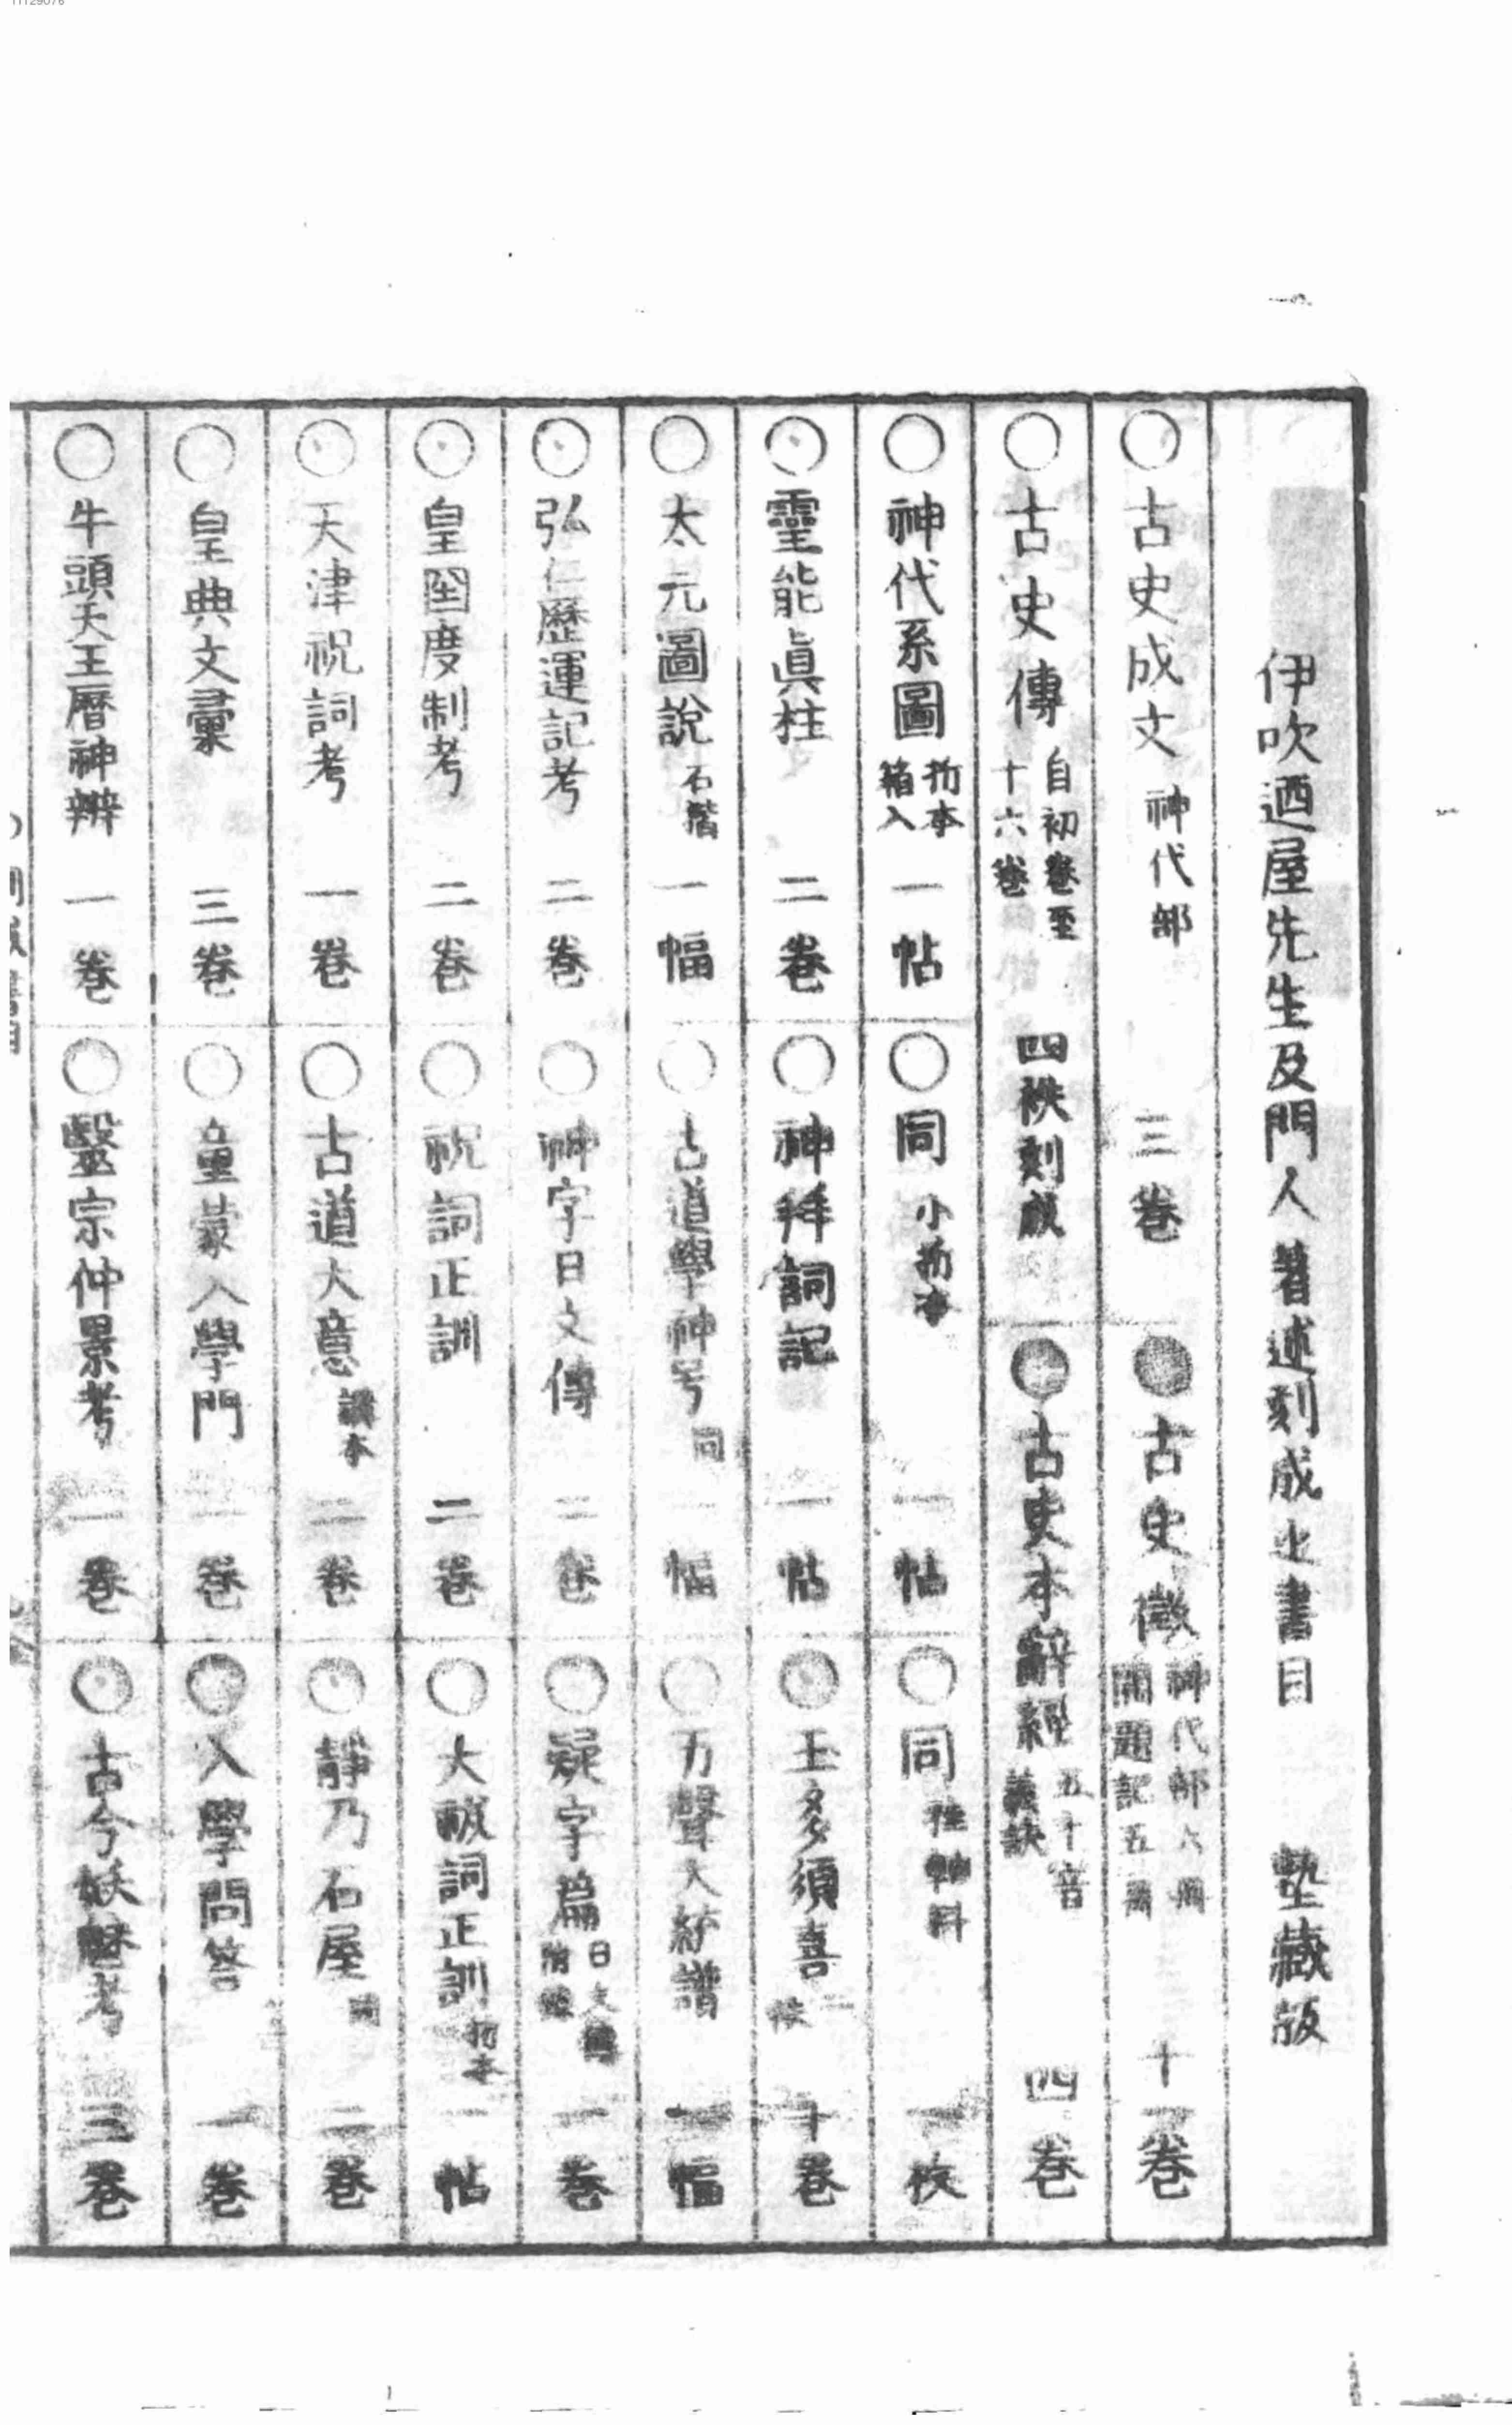 伊吹廼屋先生及門人著述刻成之書目 塾藏版
○古史成文 神代部 三卷 ●古史徵 神代部六冊 開題記五冊 十一卷
○古史傳 自初卷至十六卷 四帙刻成 ●古史本辭經 五十音義訣 四卷
○神代系圖 折本箱入 一帖 ○同 小折本 一帖 ○同 一枚
○靈能眞柱 二卷 ○神拜詞記 一帖 ○玉多須喜 二帙 十卷
○太元圖說 石摺 一幅 ○古道學神号 同 一幅 ○万聲大統譜 一幅
○弘仁歷運記考 二卷 ○神字日文傳 二卷 ○疑字篇 日文傳附錄 一卷
○皇國度制考 二卷 ○祝詞正訓 二卷 ○大祓詞正訓 折本 一帖
○天津祝詞考 一卷 ○古道大意 講本 二卷 ○靜乃石屋 同 二卷
○皇典文彙 三卷 ○童蒙入學門 一卷 ○入學問答 一卷
○牛頭天王曆神辨 一卷 ○醫宗仲景考 一卷 ○古今妖魅考 三卷